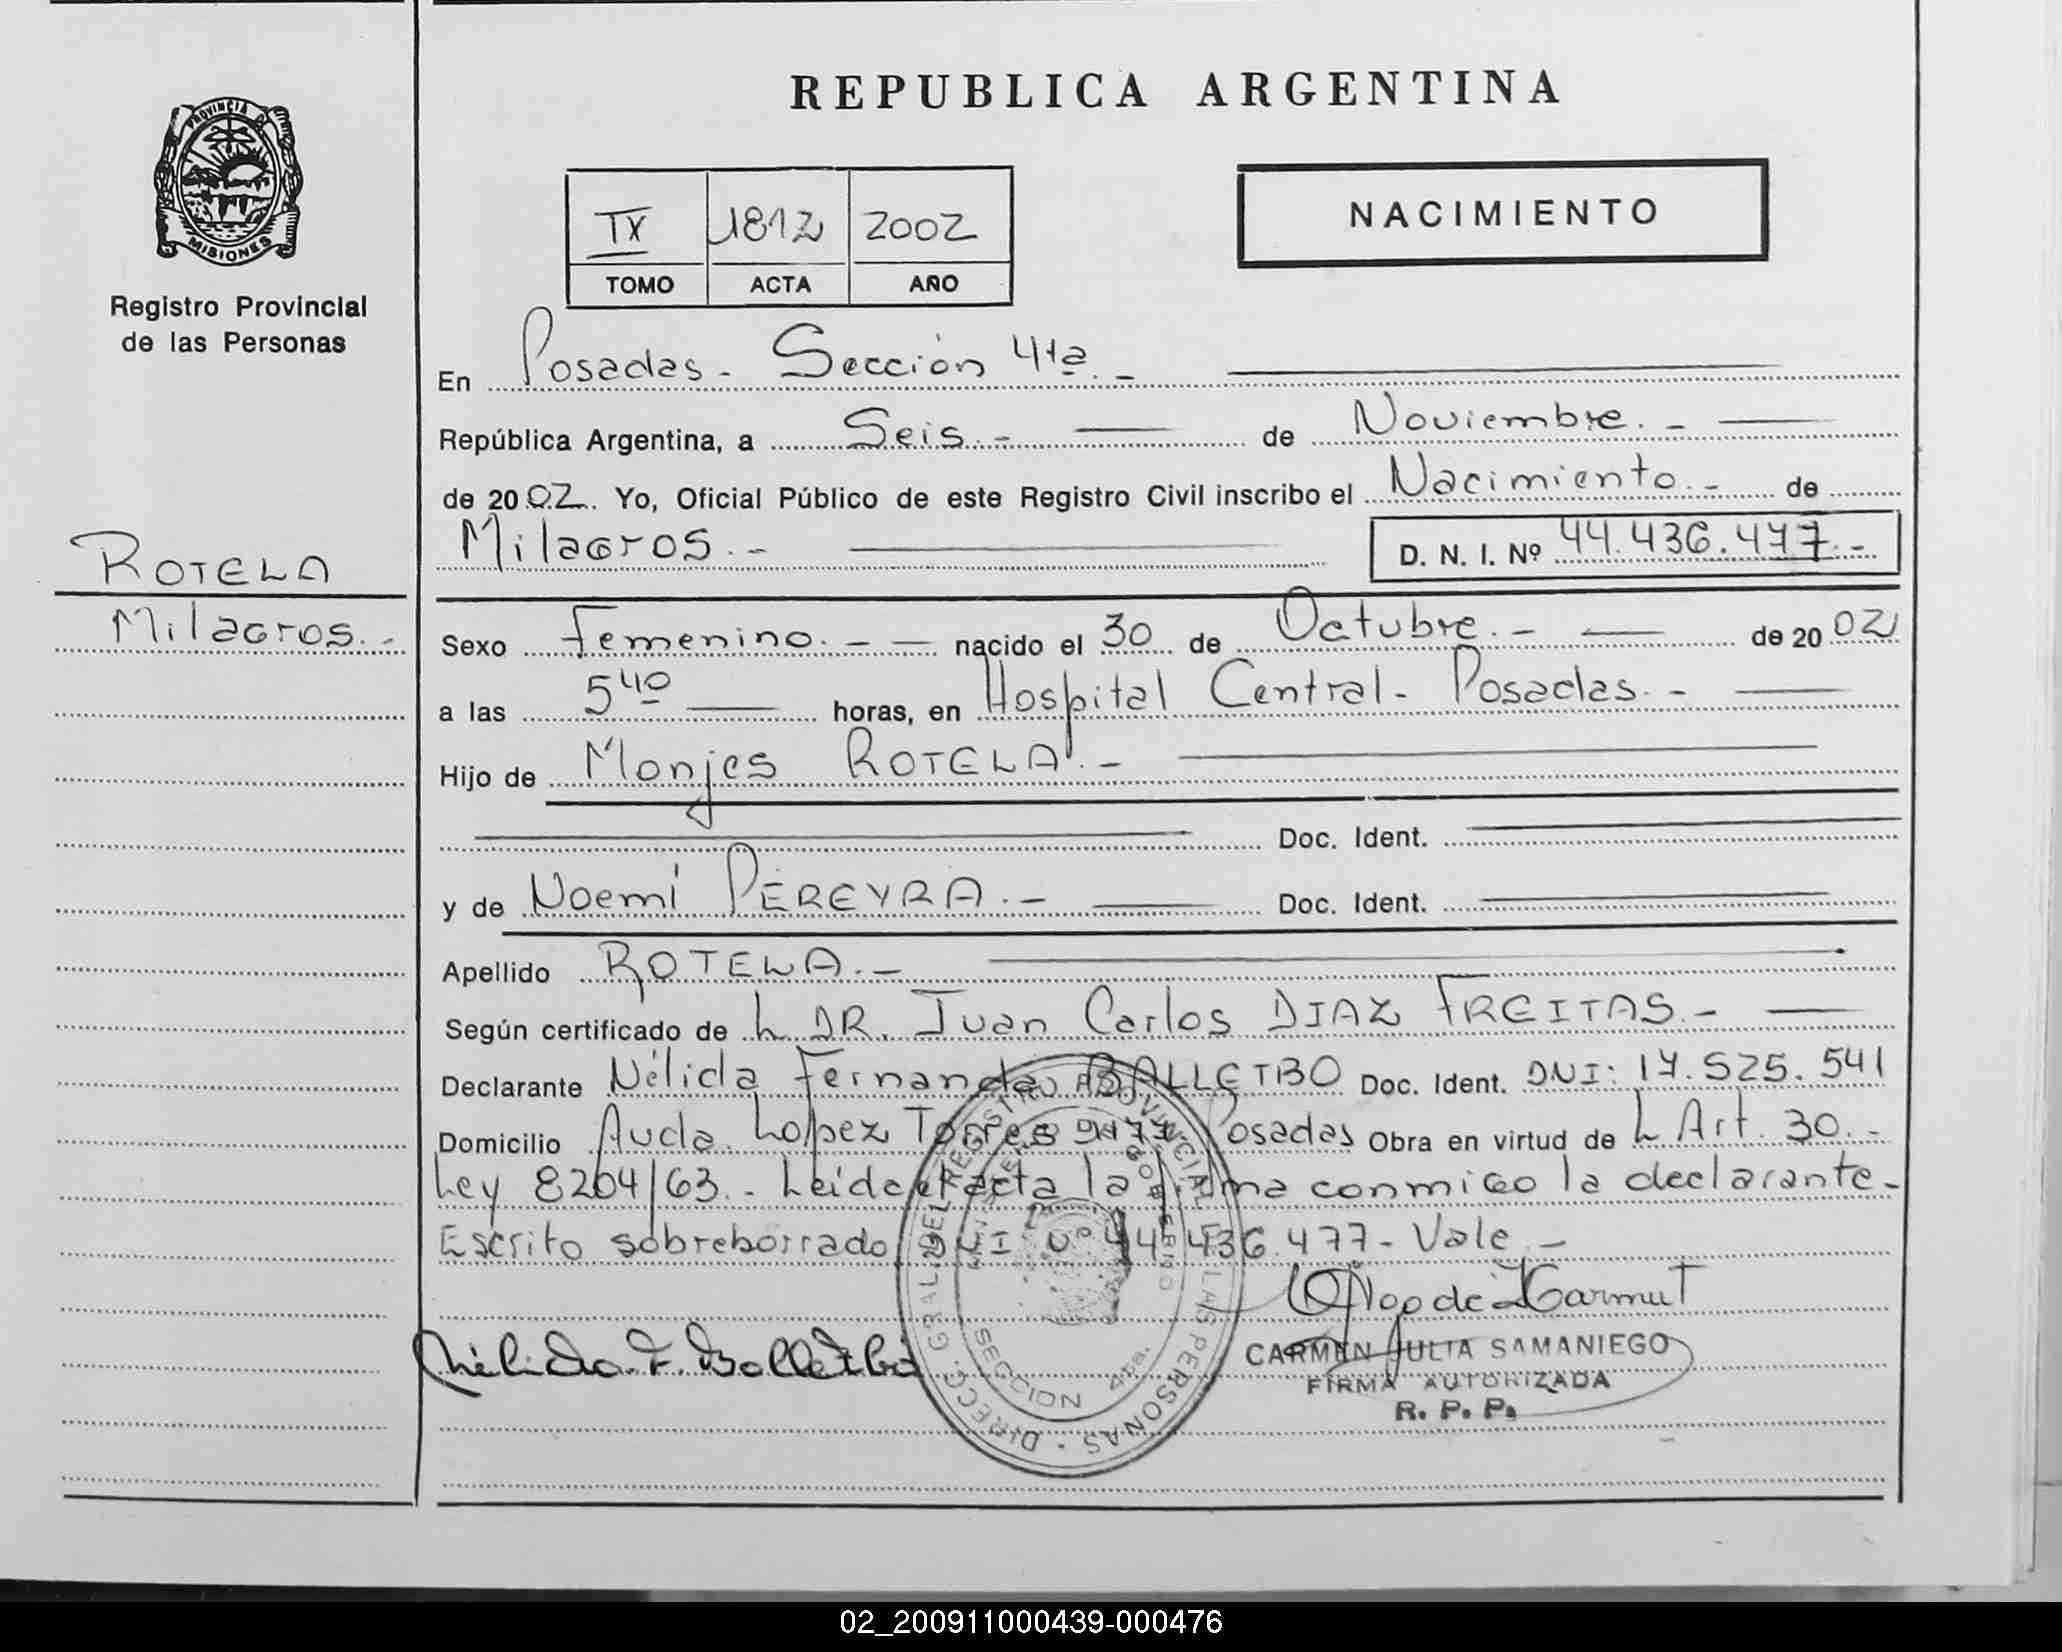 REPUBLICA ARGENTINA
PROVINCIA DE
MISIONES
Registro Provincial
de las Personas
ROTELA
Milagros.-
NACIMIENTO
IX 1812 2002
TOMO ACTA AÑO
En Posadas - Sección 4ta.-
República Argentina, a Seis.- de Noviembre.-
de 2002. Yo, Oficial Público de este Registro Civil inscribo el Nacimiento.- de
Milagros.- D. N. I. Nº 44.436.477.-
Sexo Femenino.- nacido el 30 de Octubre.- de 2002
a las 5 40 horas, en Hospital Central - Posadas.-
Hijo de Monjes ROTELA.-
Doc. Ident.
y de Noemí PEREYRA.- Doc. Ident.
Apellido ROTELA.-
Según certificado de L DR. Juan Carlos DIAZ FREITAS.-
Declarante Nélida Fernanda BALLETBO Doc. Ident. DNI: 17.525.541
Domicilio Avda. Lopez Torres Posadas Obra en virtud de L Art. 30.-
Ley 8204/63.- Leída el acta la firma conmigo la declarante.-
Escrito sobreborrado DNI Nº 44.436.477 - Vale.-
Nélida F. Balletbó
CARMEN JULIA SAMANIEGO
FIRMA AUTORIZADA
R. P. P.
DIRECC. GRAL. DEL REGISTRO PROVINCIAL DE LAS PERSONAS
SECCION 4ta.
02_200911000439-000476